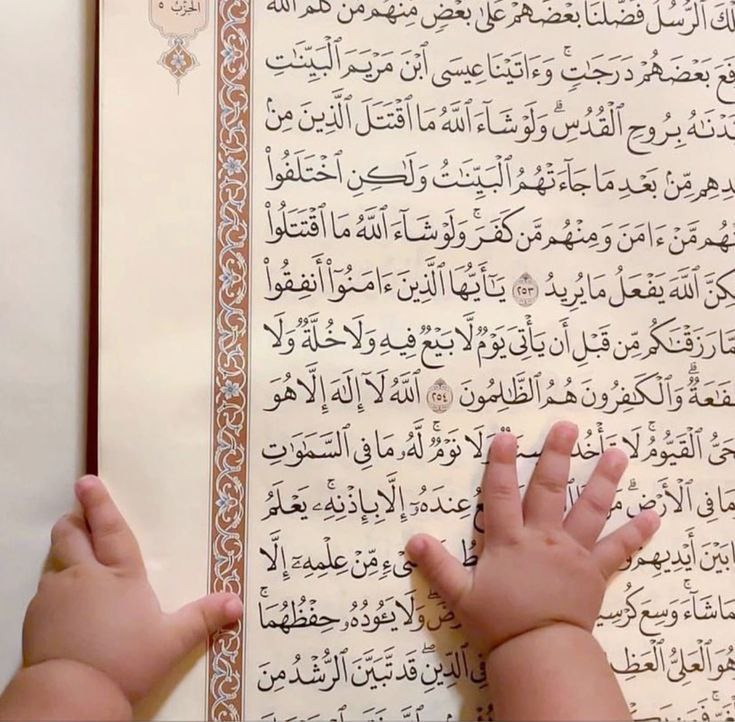 الحزب ٥
ٱلرُّسُلُ فَضَّلْنَا بَعْضَهُمْ عَلَىٰ بَعْضٍ مِّنْهُم مَّن كَلَّمَ ٱللَّهُ
بَعْضَهُمْ دَرَجَٰتٍ ۚ وَءَاتَيْنَا عِيسَى ٱبْنَ مَرْيَمَ ٱلْبَيِّنَٰتِ
بِرُوحِ ٱلْقُدُسِ ۗ وَلَوْ شَآءَ ٱللَّهُ مَا ٱقْتَتَلَ ٱلَّذِينَ مِنۢ
مِّنۢ بَعْدِ مَا جَآءَتْهُمُ ٱلْبَيِّنَٰتُ وَلَٰكِنِ ٱخْتَلَفُوا۟
مَّنْ ءَامَنَ وَمِنْهُم مَّن كَفَرَ ۚ وَلَوْ شَآءَ ٱللَّهُ مَا ٱقْتَتَلُوا۟
ٱللَّهَ يَفْعَلُ مَا يُرِيدُ ٢٥٣ يَٰٓأَيُّهَا ٱلَّذِينَ ءَامَنُوٓا۟ أَنفِقُوا۟
مِمَّا رَزَقْنَٰكُم مِّن قَبْلِ أَن يَأْتِىَ يَوْمٌ لَّا بَيْعٌ فِيهِ وَلَا خُلَّةٌ وَلَا
وَٱلْكَٰفِرُونَ هُمُ ٱلظَّٰلِمُونَ ٢٥٤ ٱللَّهُ لَآ إِلَٰهَ إِلَّا هُوَ
ٱلْقَيُّومُ ۚ لَا وَلَا نَوْمٌ ۚ لَّهُۥ مَا فِى ٱلسَّمَٰوَٰتِ
مَا فِى ٱلْأَرْضِ ۗ عِندَهُۥٓ إِلَّا بِإِذْنِهِۦ ۚ يَعْلَمُ
مِّنْ عِلْمِهِۦٓ إِلَّا
شَآءَ ۚ وَسِعَ وَلَا يَـُٔودُهُۥ حِفْظُهُمَا ۚ
ٱلْعَلِىُّ فِى ٱلدِّينِ ۖ قَد تَّبَيَّنَ ٱلرُّشْدُ مِنَ